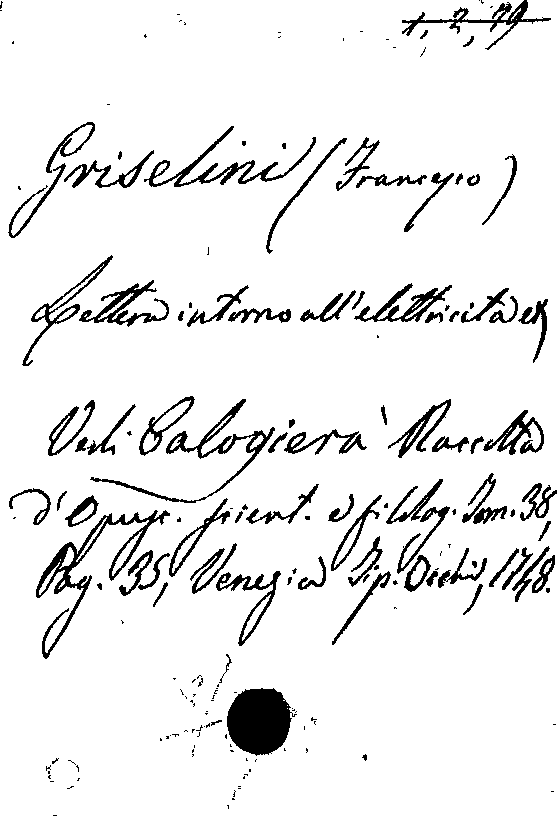 1, 2, 79
Griselini (Francesco)
Lettera intorno all'elettricità &
Vedi Calogierà Raccolta
d'Opusc. scient. e filolog. Tom. 38,
Pag. 35, Venezia Tip. Occhi, 1748.